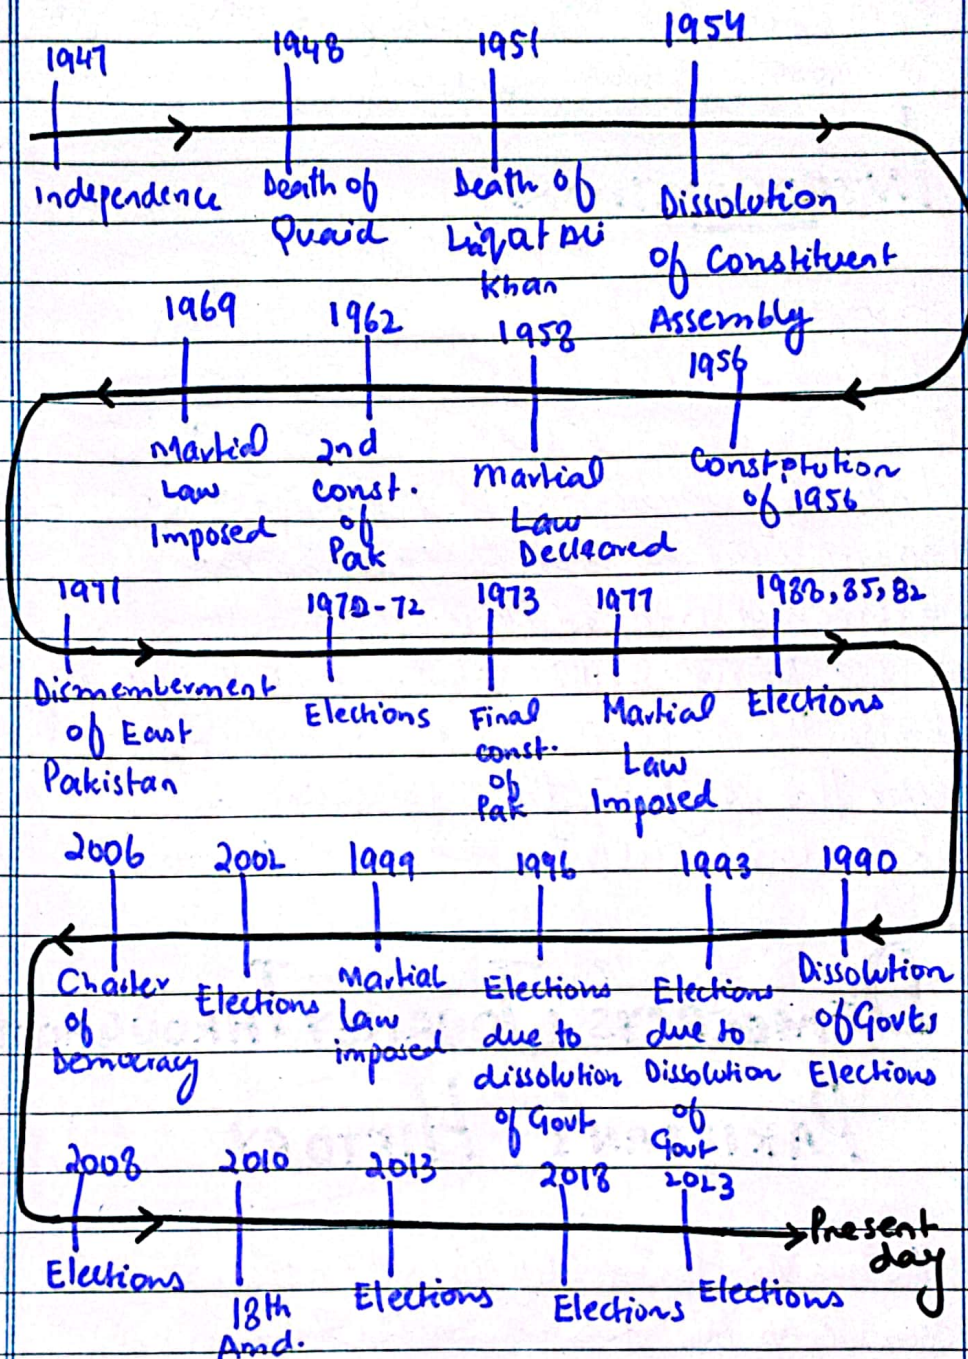 1947
Independence
1948
Death of
Quaid
1951
Death of
Liaqat Ali
Khan
1954
Dissolution
of Constituent
Assembly
1969
Martial
Law
Imposed
1962
2nd
Const.
of
Pak
1958
Martial
Law
Declared
1956
Constitution
of 1956
1971
Dismemberment
of East
Pakistan
Elections
1973
Final
const.
of
Pak
1977
Martial
Law
Imposed
1988, 85, 82
Elections
2006
Charter
of
Democracy
2002
Elections
1999
Martial
Law
imposed
1996
Elections
due to
dissolution
of Govt
1993
Elections
due to
Dissolution
of
Govt
1990
Dissolution
of Govts
Elections
2008
Elections
2010
18th
Amd.
2013
Elections
2018
Elections
2023
Elections
Present
day